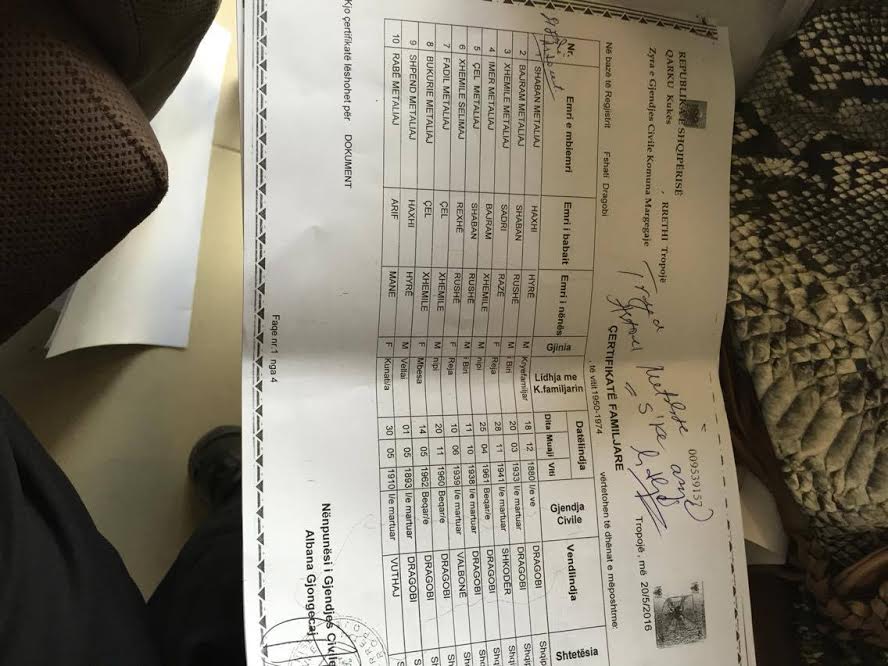 REPUBLIKA E SHQIPËRISË
QARKU Kukës , RRETHI Tropojë
Zyra e Gjendjes Civile Komuna Margegaje
009539152
Tropojë , më 20/5/2016
ÇERTIFIKATË FAMILJARE
Në bazë të Regjistrit Fshati Dragobi , të vitit 1950-1974 vërtetohen të dhënat e mëposhtme:
Nr. Emri e mbiemri Emri i babait Emri i nënës Gjinia Lidhja me K.familjarin Datëlindja Dita Muaji Viti Gjendja Civile Vendlindja Shtetësia
SHABAN METALIAJ HAXHI HYRË M Kryefamiljar 18 12 1880 I/e ve DRAGOBI Shqip
2 BAJRAM METALIAJ SHABAN RUSHË M i Biri 20 03 1933 I/e martuar DRAGOBI Shqi
3 XHEMILE METALIAJ SADRI RAZË F Reja 28 11 1941 I/e martuar SHKODËR Shqi
4 IMER METALIAJ BAJRAM XHEMILE M nipi 25 04 1961 Beqar/e DRAGOBI Shq
5 ÇEL METALIAJ SHABAN RUSHË M i Biri 11 10 1938 I/e martuar DRAGOBI Shq
6 XHEMILE SELIMAJ REXHË RUSHË F Reja 10 06 1939 I/e martuar VALBONË Sh
7 FADIL METALIAJ ÇEL XHEMILE M nipi 20 11 1960 Beqar/e DRAGOBI Sh
8 BUKURIE METALIAJ ÇEL XHEMILE F Mbesa 14 05 1962 Beqar/e DRAGOBI Sh
9 SHPEND METALIAJ HAXHI HYRË M Vëllai 01 05 1893 I/e martuar DRAGOBI S
10 RABË METALIAJ ARIF MANE F Kunati/a 30 05 1910 I/e martuar VUTHAJ S
Kjo çertifikatë lëshohet për DOKUMENT
Nënpunësi i Gjendjes Civile
Albana Gjongecaj
Faqe nr.1 nga 4